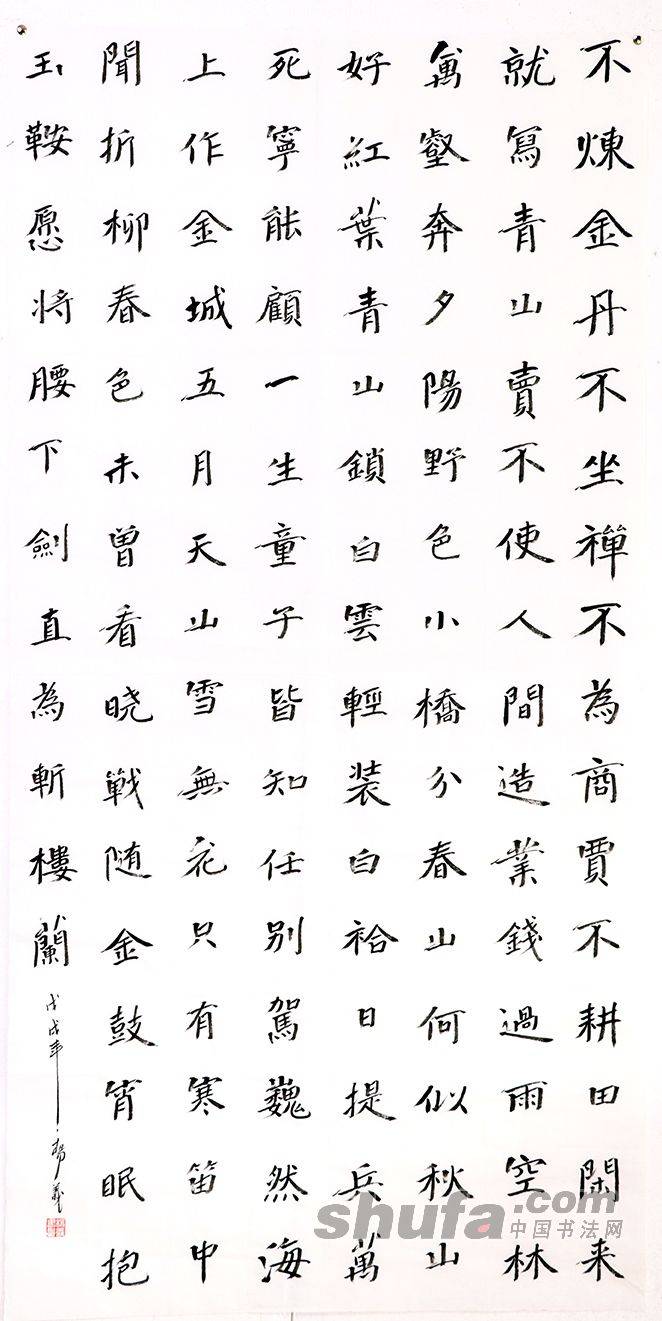 不煉金丹不坐禪不為商賈不耕田閑来
就寫青山賣不使人間造業錢過雨空林
萬壑奔夕陽野色小橋分春山何似秋山
好紅葉青山鎖白雲輕装白袷日提兵萬
死寧能顧一生童子皆知任別駕巍然海
上作金城五月天山雪無花只有寒笛中
聞折柳春色未曾看晓戰随金鼓宵眠抱
玉鞍愿将腰下劍直為斬樓蘭
戊戌年
shufa.com
中国书法网